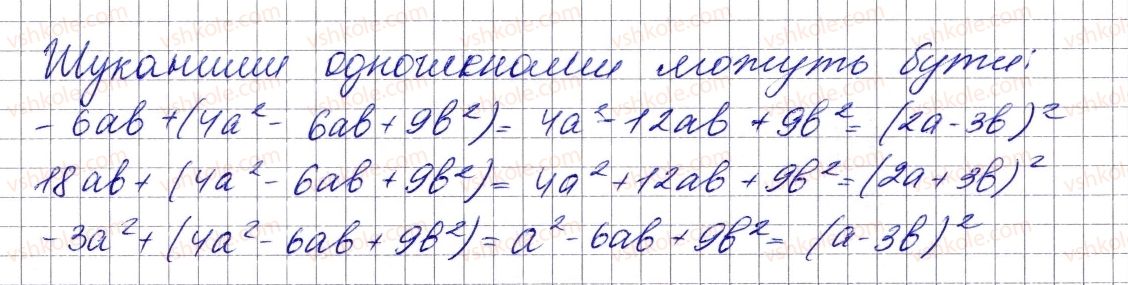 Шуканими одночленами можуть бути:
- 6ab + (4a² - 6ab + 9b²) = 4a² - 12ab + 9b² = (2a - 3b)²
18ab + (4a² - 6ab + 9b²) = 4a² + 12ab + 9b² = (2a + 3b)²
- 3a² + (4a² - 6ab + 9b²) = a² - 6ab + 9b² = (a - 3b)²